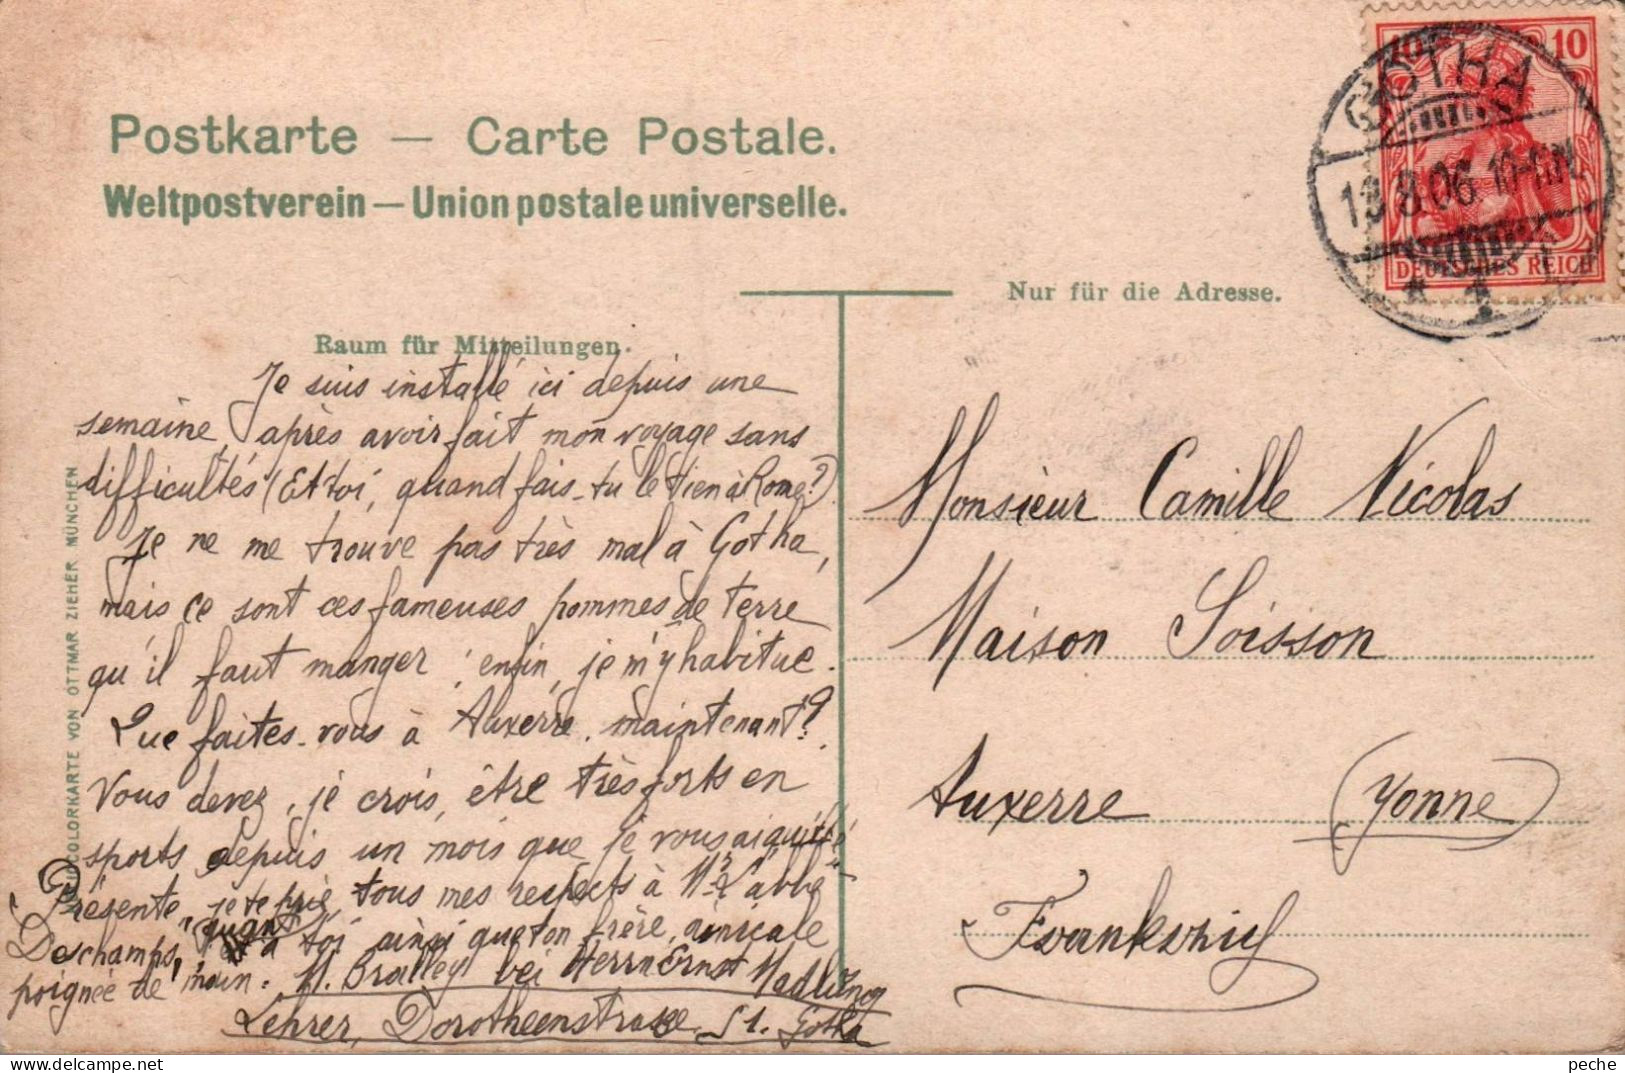 Postkarte — Carte Postale.
Weltpostverein — Union postale universelle.
10 10
DEUTSCHES REICH
GOTHA
13.8.06. 10-11N.
* 1
Nur für die Adresse.
Raum für Mitteilungen.
Je suis installé ici depuis une
semaine, après avoir fait mon voyage sans
difficultés (Et toi, quand fais-tu le tien à Rome?)
Je ne me trouve pas très mal à Gotha,
mais ce sont ces fameuses pommes de terre
qu'il faut manger ; enfin, je m'y habitue.
Que faites-vous à Auxerre, maintenant?
Vous devez, je crois, être très forts en
sports depuis un mois que je vous ai quitté
Présente, je te prie, tous mes respects à Mr l'abbé
Deschamps, quant à toi ainsi que ton frère, amicale
poignée de main. M. Bralley bei Herrn Ernst Madlung
Lehrer, Dorotheenstrasse 51. Gotha
Monsieur Camille Nicolas
Maison Soisson
Auxerre (Yonne)
Frankreich
COLORKARTE VON OTTMAR ZIEHER MÜNCHEN
peche